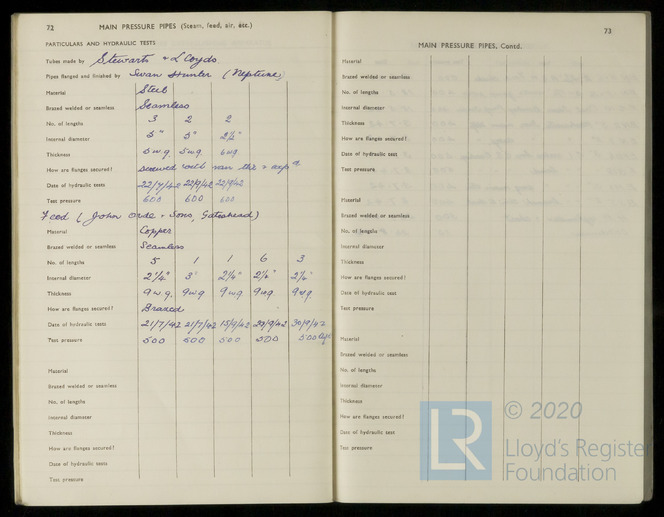 72 MAIN PRESSURE PIPES (Steam, feed, air, etc.)
PARTICULARS AND HYDRAULIC TESTS
Tubes made by Stewarts & Lloyds
Pipes flanged and finished by Swan Hunter (Neptune)
Material Steel
Brazed welded or seamless Seamless
No. of lengths 3 2 2
Internal diameter 5" 5" 2½"
Thickness 5wg 5wg 6wg
How are flanges secured? screwed with van
Date of hydraulic tests 22/7/42 22/9/42 22/9/42
Test pressure 600 600 600
Feed (John Orde & Sons, Gateshead)
Material Copper
Brazed welded or seamless Seamless
No. of lengths 5 1 1 6 3
Internal diameter 2¼" 3" 2¼" 2¼" 2¼"
Thickness 9wg. 9wg 9wg 9wg 9wg.
How are flanges secured? Brazed
Date of hydraulic tests 21/7/42 21/7/42 15/9/42 29/9/42 30/9/42
Test pressure 500 500 500 500 500
Material
Brazed welded or seamless
No. of lengths
Internal diameter
Thickness
How are flanges secured?
Date of hydraulic tests
Test pressure
73
MAIN PRESSURE PIPES, Contd.
Material
Brazed welded or seamless
No. of lengths
Internal diameter
Thickness
How are flanges secured?
Date of hydraulic test
Test pressure
Material
Brazed welded or seamless
No. of lengths
Internal diameter
Thickness
How are flanges secured?
Date of hydraulic test
Test pressure
Material
Brazed welded or seamless
No. of lengths
Internal diameter
Thickness
How are flanges secured?
Date of hydraulic test
Test pressure
LR © 2020
Lloyd's Register
Foundation